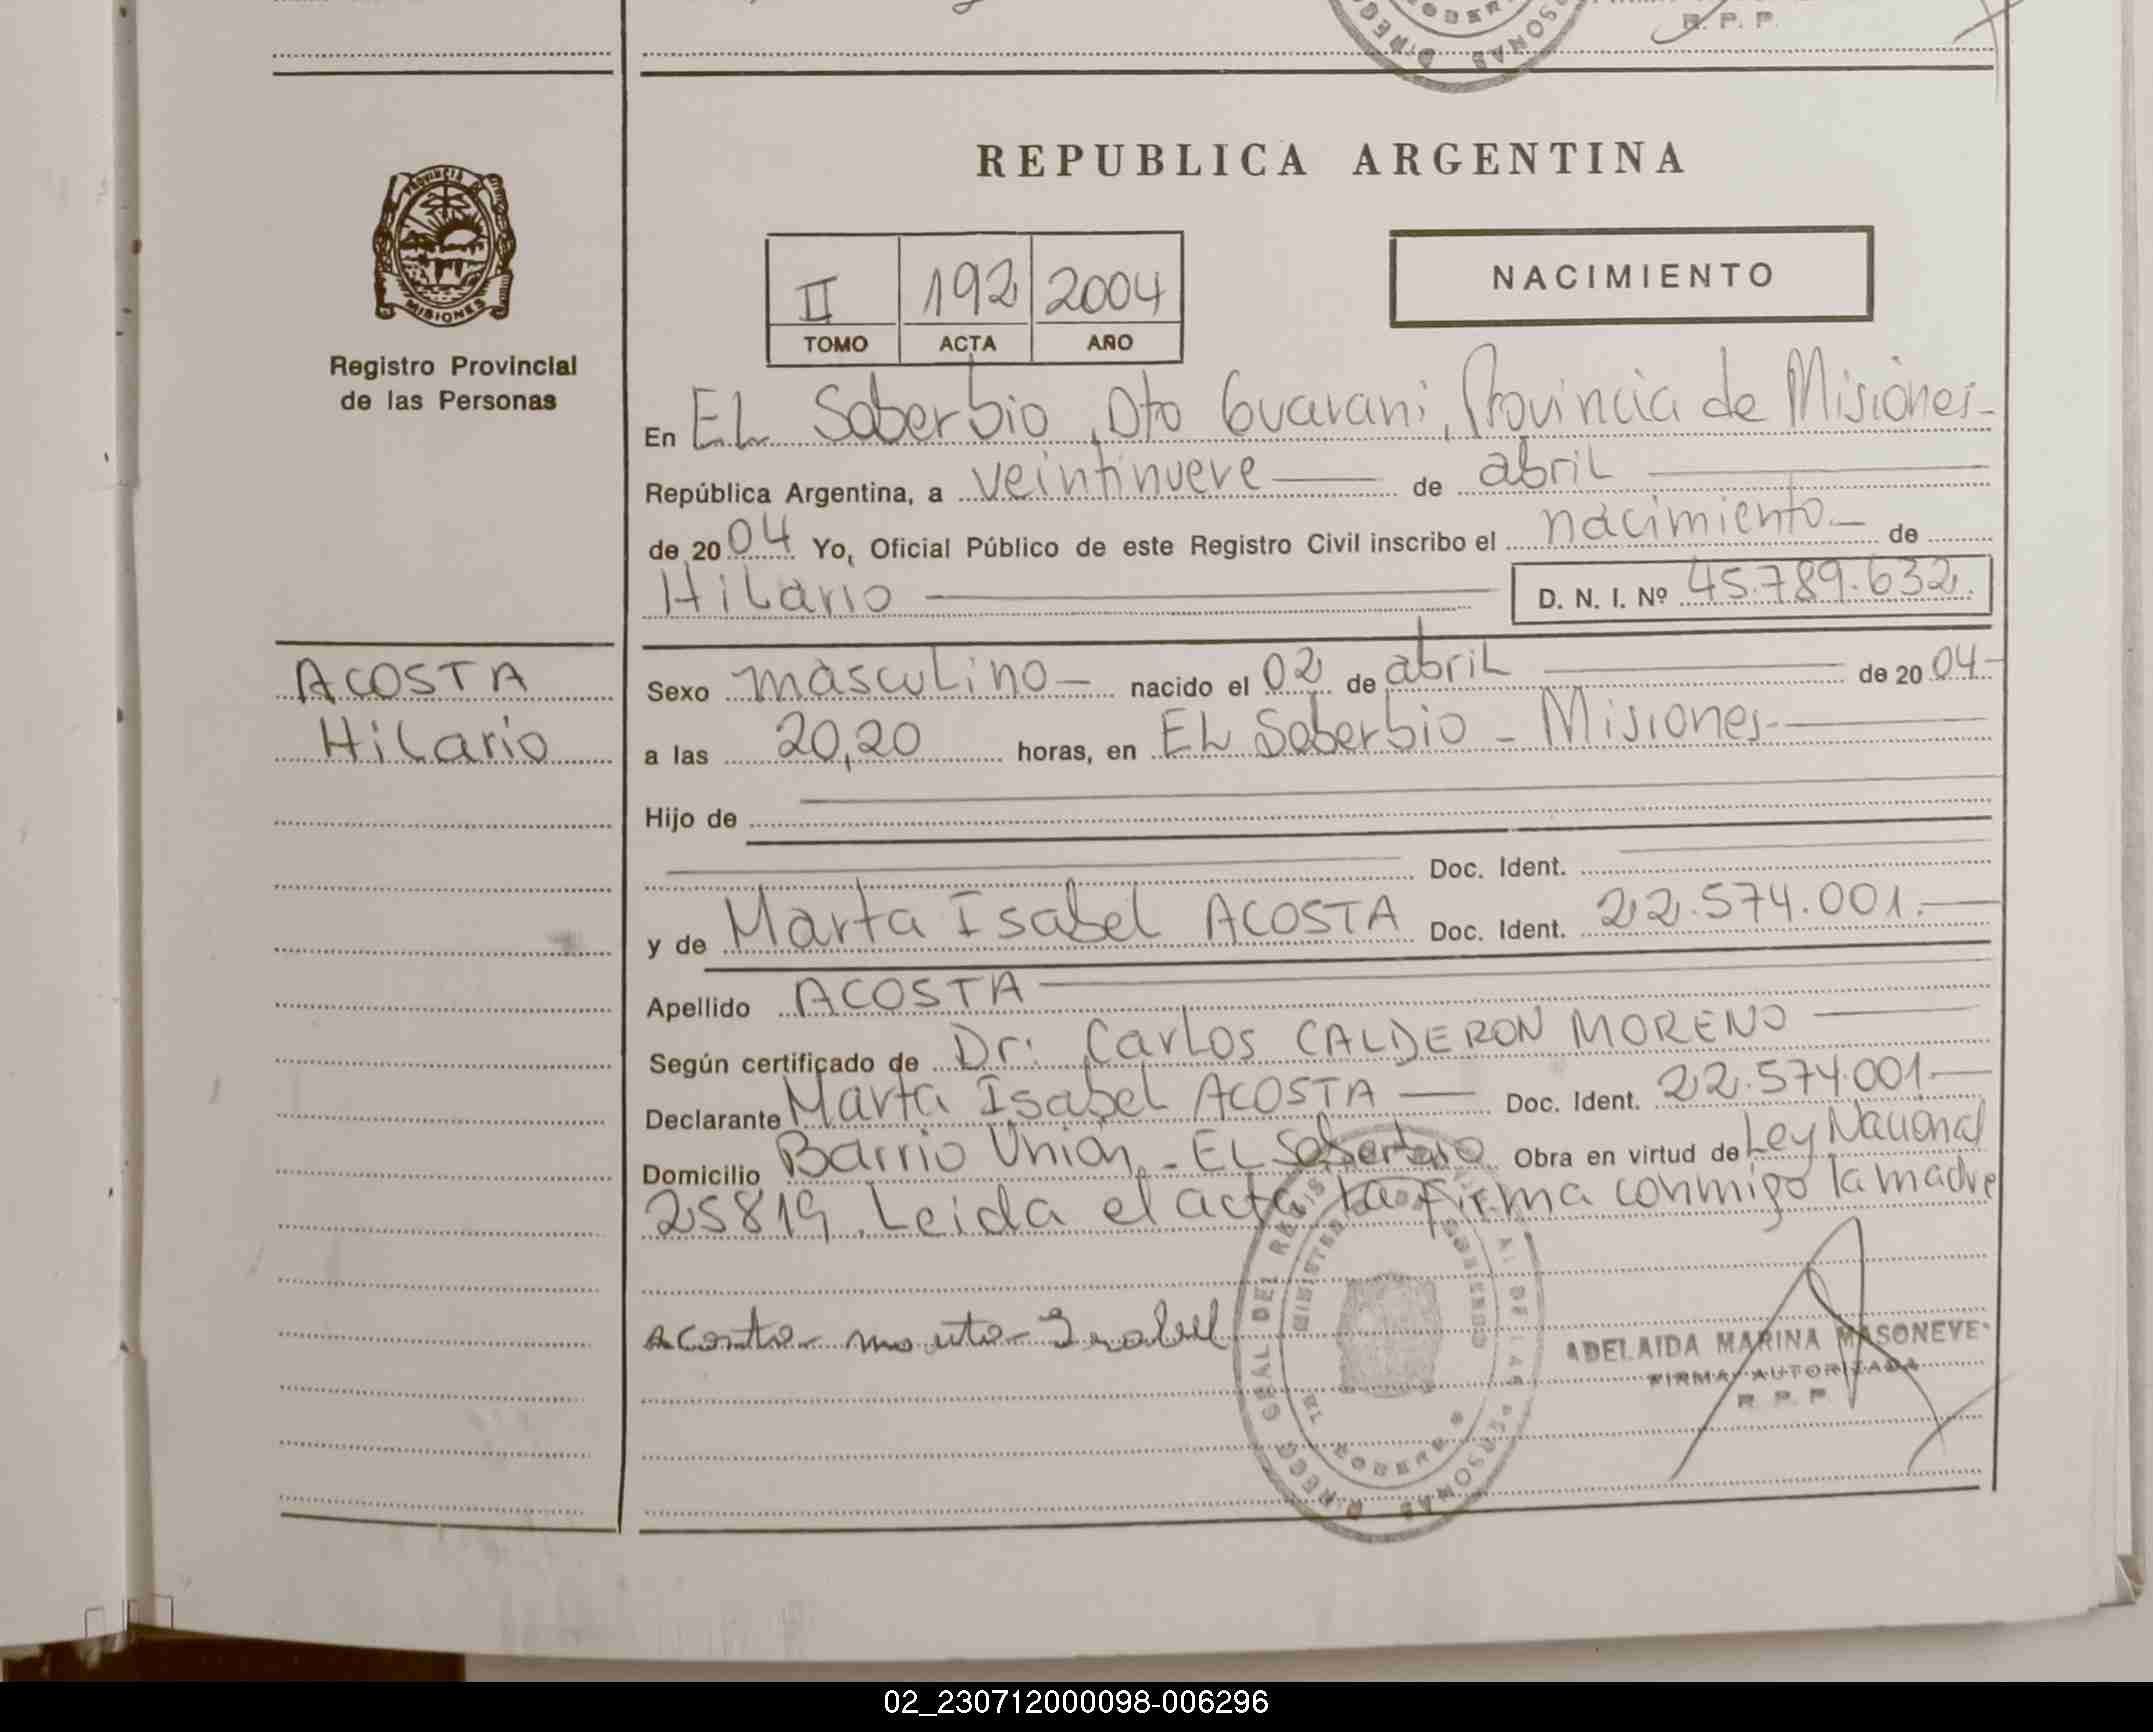 R. P. P.
REPUBLICA ARGENTINA
PROVINCIA DE
MISIONES
Registro Provincial
de las Personas
II 192 2004
TOMO ACTA AÑO
NACIMIENTO
En EL Soberbio, Dto Guarani, Provincia de Misiones-
República Argentina, a veintinueve de abril
de 2004 Yo, Oficial Público de este Registro Civil inscribo el nacimiento- de
Hilario D. N. I. Nº 45.789.632.
ACOSTA
Hilario
Sexo masculino- nacido el 02 de abril de 2004-
a las 20,20 horas, en EL Soberbio - Misiones-
Hijo de
Doc. Ident.
y de Marta Isabel ACOSTA Doc. Ident. 22.574.001.-
Apellido ACOSTA
Según certificado de Dr: Carlos CALDERON MORENO
Declarante Marta Isabel ACOSTA Doc. Ident. 22.574.001-
Domicilio Barrio Unión - EL Soberbio Obra en virtud de Ley Nacional
25819. Leida el acta la firma conmigo la madre
Acosta marta Isabel
ADELAIDA MARINA MASONEVE
FIRMA AUTORIZADA
R. P. P.
02_230712000098-006296